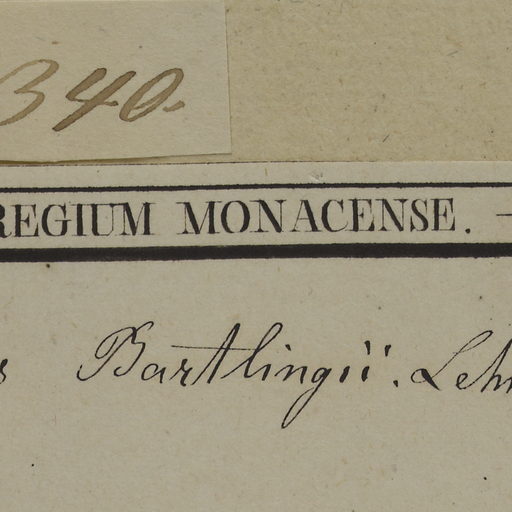 340.
REGIUM MONACENSE. —
s Bartlingii. Leh